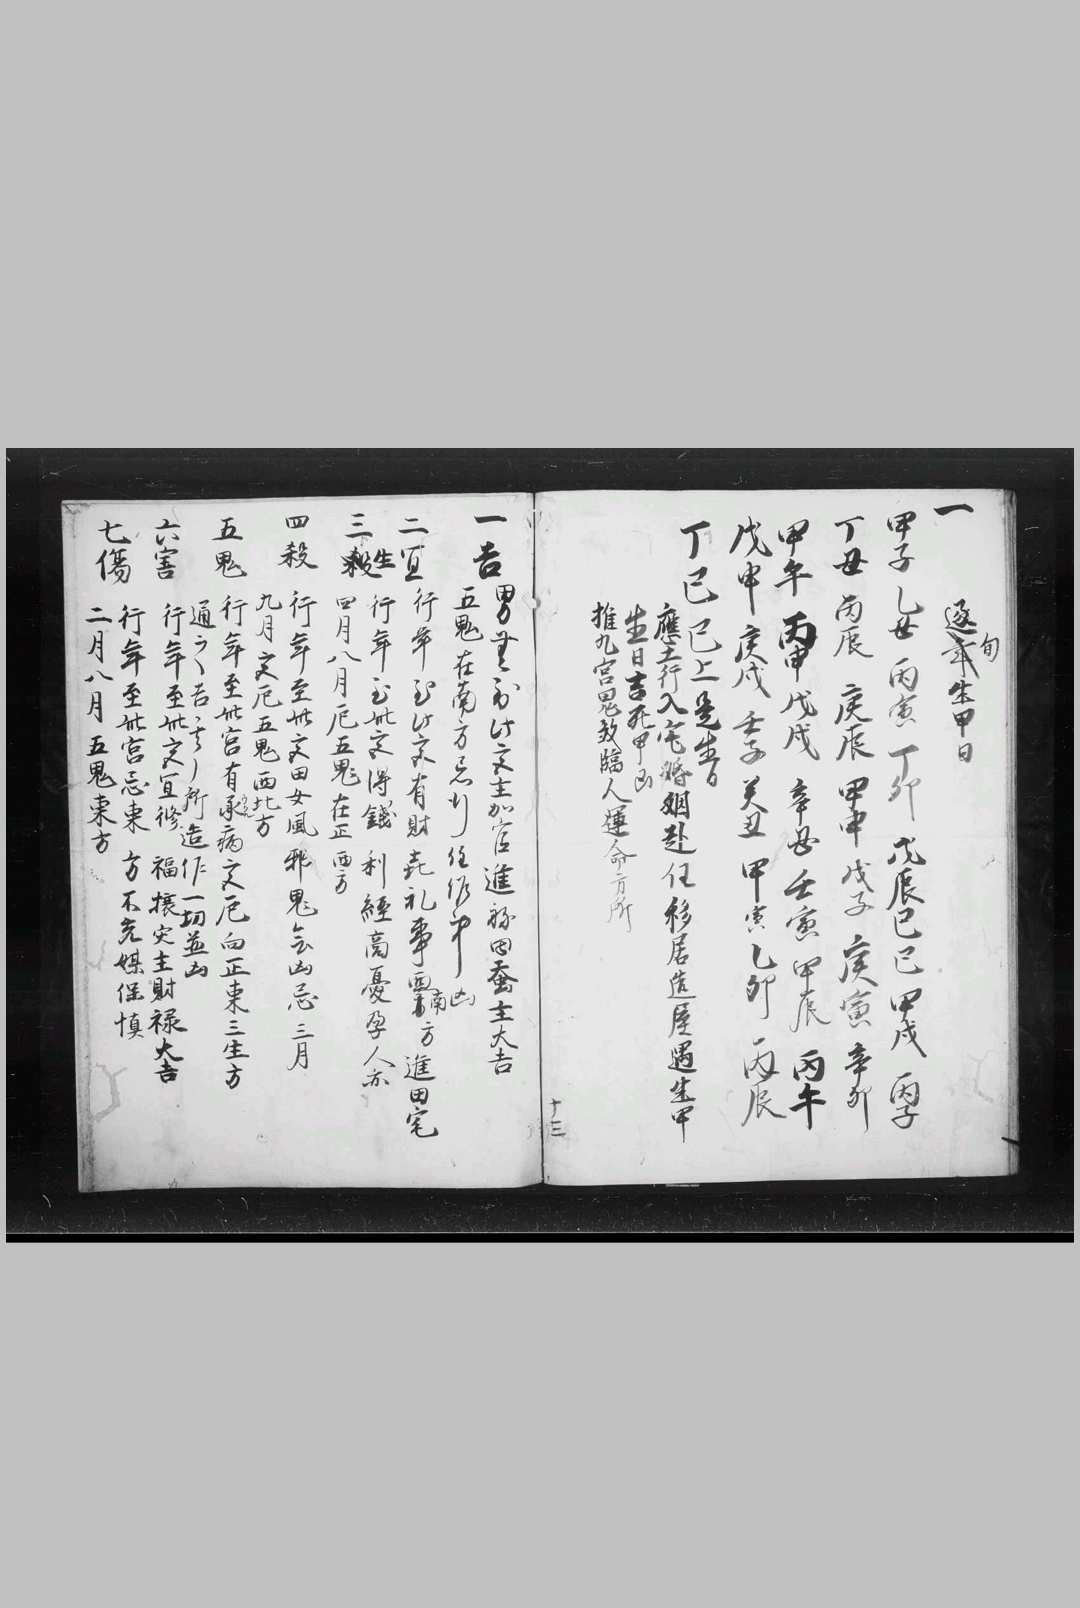 一 逐年旬生甲日
甲子 乙丑 丙寅 丁卯 戊辰 己巳 甲戌 丙子
丁丑 丙辰 庚辰 甲申 戊子 庚寅 辛卯
甲午 丙申 戊戌 辛丑 壬寅 甲辰 丙午
戊申 庚戌 壬子 癸丑 甲寅 乙卯 丙辰
丁巳 已上是生日
應土行入宅婚姻赴任移居造屋遇生甲
生日吉死甲凶
推九宮 臨人運命方所
十三
一吉 男 此文主加官進 田蚕主大吉
五鬼在南方忌 住 凶
二宜 行年到此文有財 礼事西南方進田宅
三生 行年至此文得錢 利經高憂孕人亦
四月八月厄五鬼在正西方
四殺 行年至此文田女風邪鬼 凶忌三月
九月文厄五鬼西北方
五鬼 行年至此宮有 病文厄向正東三生方
通 所造作一切並凶
六害 行年至此文宜修 福攘灾主財禄大吉
七傷 行年至此宮忌東 方不 媒保慎
二月八月五鬼東方